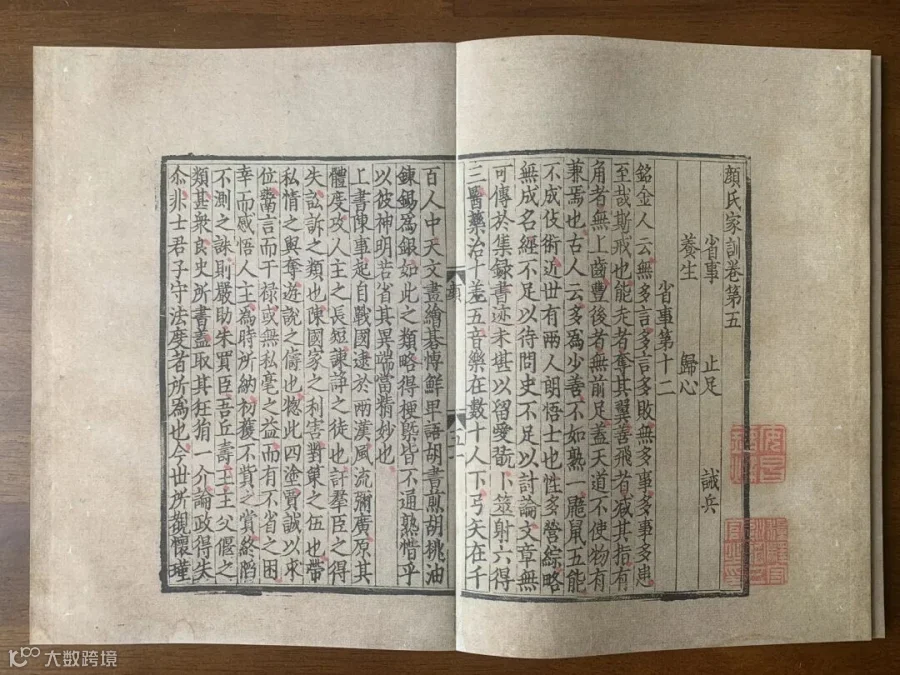 顏氏家訓卷第五
省事 止足 誡兵
養生 歸心
省事第十二
銘金人云無多言多言多敗無多事多事多患
至哉斯戒也能走者奪其翼善飛者減其指有
角者無上齒豐後者無前足蓋天道不使物有
兼焉也古人云多為少善不如執一鼯鼠五能
不成伎術近世有兩人朗悟士也性多營綜略
無成名經不足以待問史不足以討論文章無
可傳於集録書迹未堪以留愛翫卜筮射六得
三醫藥治十差五音樂在數十人下弓矢在千
顏
五
一
百人中天文畫繪棊博鮮卑語胡書煎胡桃油
鍊錫為銀如此之類略得梗槩皆不通熟惜乎
以彼神明若省其異端當精妙也
上書陳事起自戰國逮於兩漢風流彌廣原其
體度攻人主之長短諫諍之徒也訐羣臣之得
失訟訴之類也陳國家之利害對策之伍也帶
私情之與奪遊說之儔也揔此四塗賈誠以求
位鬻言而干禄或無私毫之益而有不省之困
幸而感悟人主為時所納初獲不貲之賞終陷
不測之誅則嚴助朱買臣吾丘壽王主父偃之
類甚衆良史所書蓋取其狂狷一介論政得失
尒非士君子守法度者所為也今世所覩懷瑾
大数跨境